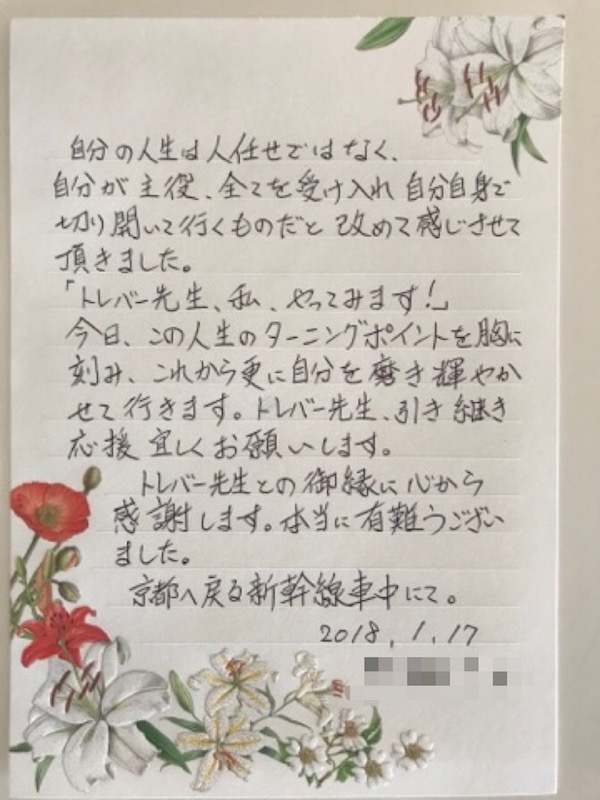 自分の人生は人任せではなく、
自分が主役、全てを受け入れ自分自身で
切り開いて行くものだと改めて感じさせて
頂きました。
「トレバー先生、私、やってみます!」
今日、この人生のターニングポイントを胸に
刻み、これから更に自分を磨き輝やか
せて行きます。トレバー先生、引き継き
応援宜しくお願いします。
トレバー先生との御縁に心から
感謝します。本当に有難うござい
ました。
京都へ戻る新幹線車中にて。
2018,1,17